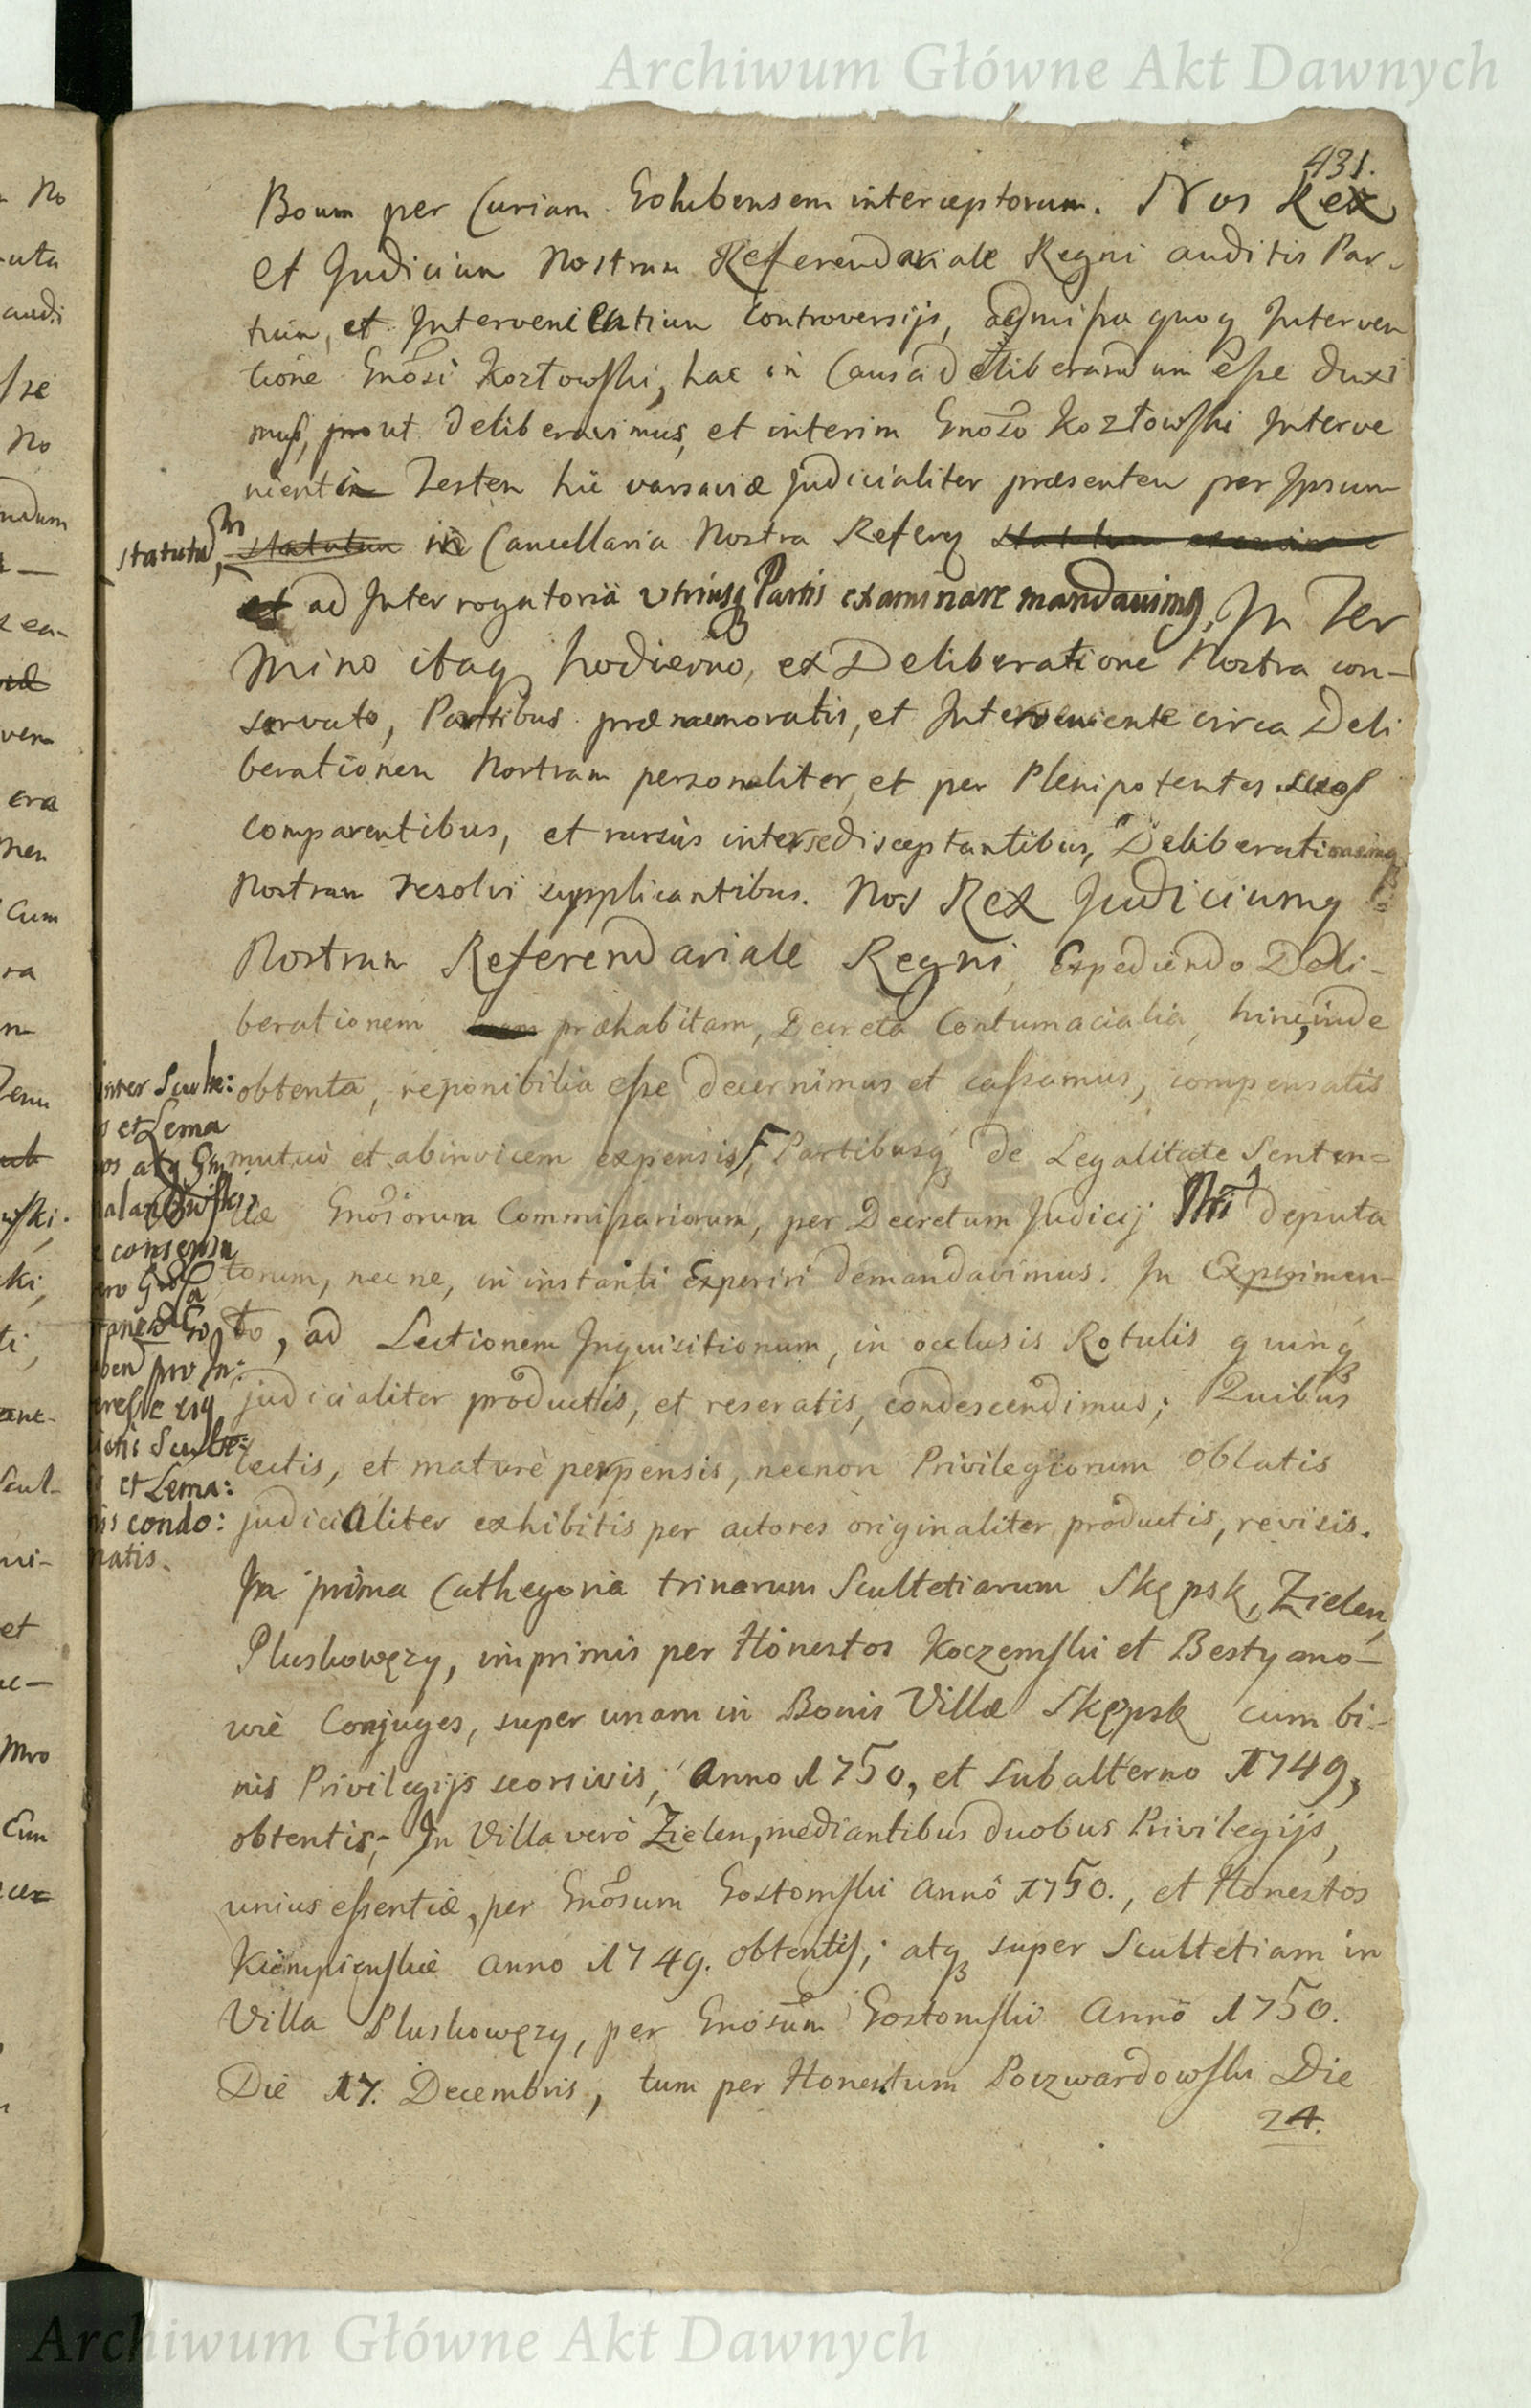 Archiwum Główne Akt Dawnych
431.
Boum per Curiam Golubensem interceptorum. Nos Rex
et Judicium Nostrum Referendariale Regni auditis Par-
tium, et Intervenientium Controversijs, admissa quoq Interven
tione Gnosi Kozłowski, hac in Causa Deliberandum esse duxi
mus, prout Deliberavimus, et interim Gnoso Kozłowski Interve
nient in Testem hic varsaviæ judicialiter præsentem per Ipsum
statutum, statutum in Cancellaria Nostra Refery
et ad Interrogatoria utriusq Partis examinare mandavimq, In Ter
mino itaq hodierno, ex Deliberatione Nostra con-
servato, Partibus prænemoratis, et Interveniente circa Deli
berationem Nostram personaliter, et per Plenipotentes suos
comparentibus, et rursus inter se disceptantibus, Deliberationemq
Nostram resolvi supplicantibus. Nos Rex Judiciumq
Nostrum Referendariale Regni, Expediendo Deli-
berationem præhabitam, Decreta Contumacialia, hinc, inde
obtenta, reponibilia esse decernimus et cassamus, compensatis
mutuo et abinvicem expensis, Partibusq de Legalitate Senten=
tiæ Gnosorum Commissariorum, per Decretum Judicij Nri deputa
torum, nec ne, in instanti Experiri demandavimus. In Experimen-
to, ad Lectionem Inquisitionum, in occlusis Rotulis quinq
judicialiter productis, et reseratis, condescendimus; Quibus
lectis, et maturè perpensis, necnon Privilegiorum Oblatis
judicialiter exhibitis per actores originaliter productis, revisis.
inter Sculte:
s et Lema
os atq Gn
consensu
ben pro In:
eresse
et Lema:
is condo:
natis.
In prima Cathegoria trinarum Scultetiarum Skępsk, Zielen,
Pluskowęzy, imprimis per Honestos Koczemski et Bestyano-
wie Conjuges, super unam in Bonis Villæ Skępsk cum bi-
nis Privilegijs seorsivis, Anno 1750, et Subalterno 1749,
obtentis; In Villa verò Zielen, mediantibus duobus Privilegijs,
unius essentiæ, per Gnosum Gostomski Anno 1750., et Honestos
Kiempienskie Anno 1749. obtentis; atq super Scultetiam in
Villa Pluskowęzy, per Gnosum Gostomski Anno 1750.
Die 17. Decembris, tum per Honestum Poczwardowski Die
24.
Archiwum Główne Akt Dawnych